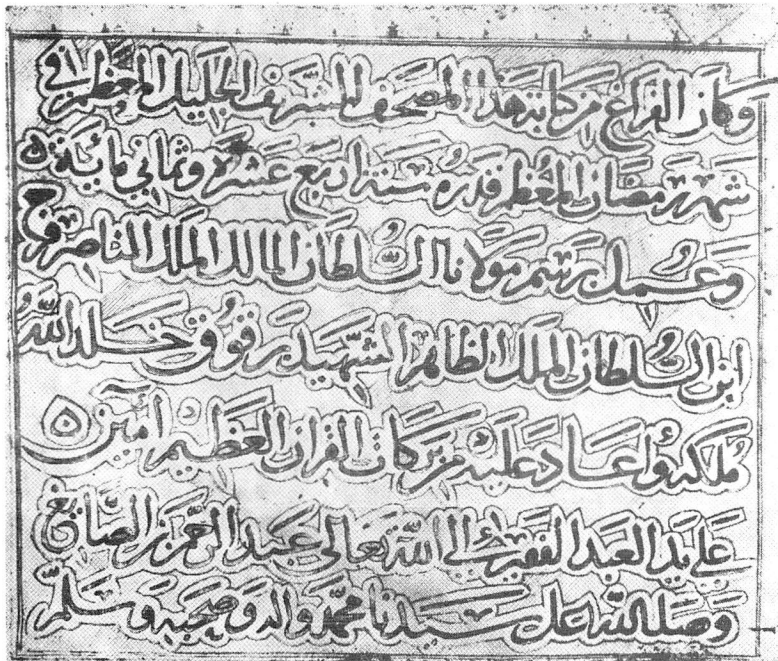 وكان الفراغ من كتابة هذا المصحف الشريف الجليل المعظم في
شهر رمضان المعظم قدره سنة اربع عشره وثماني مايه
وعمل برسم مولانا السلطان المالك الملك الناصر فرج
ابن السلطان الملك الظاهر الشهيد برقوق خلد الله
ملكه واعاد عليه من بركات القران العظيم امين
على يد العبد الفقير إلى الله تعالى عبد الرحمن بن الصايغ
وصلى الله على سيدنا محمد واله وصحبه وسلم